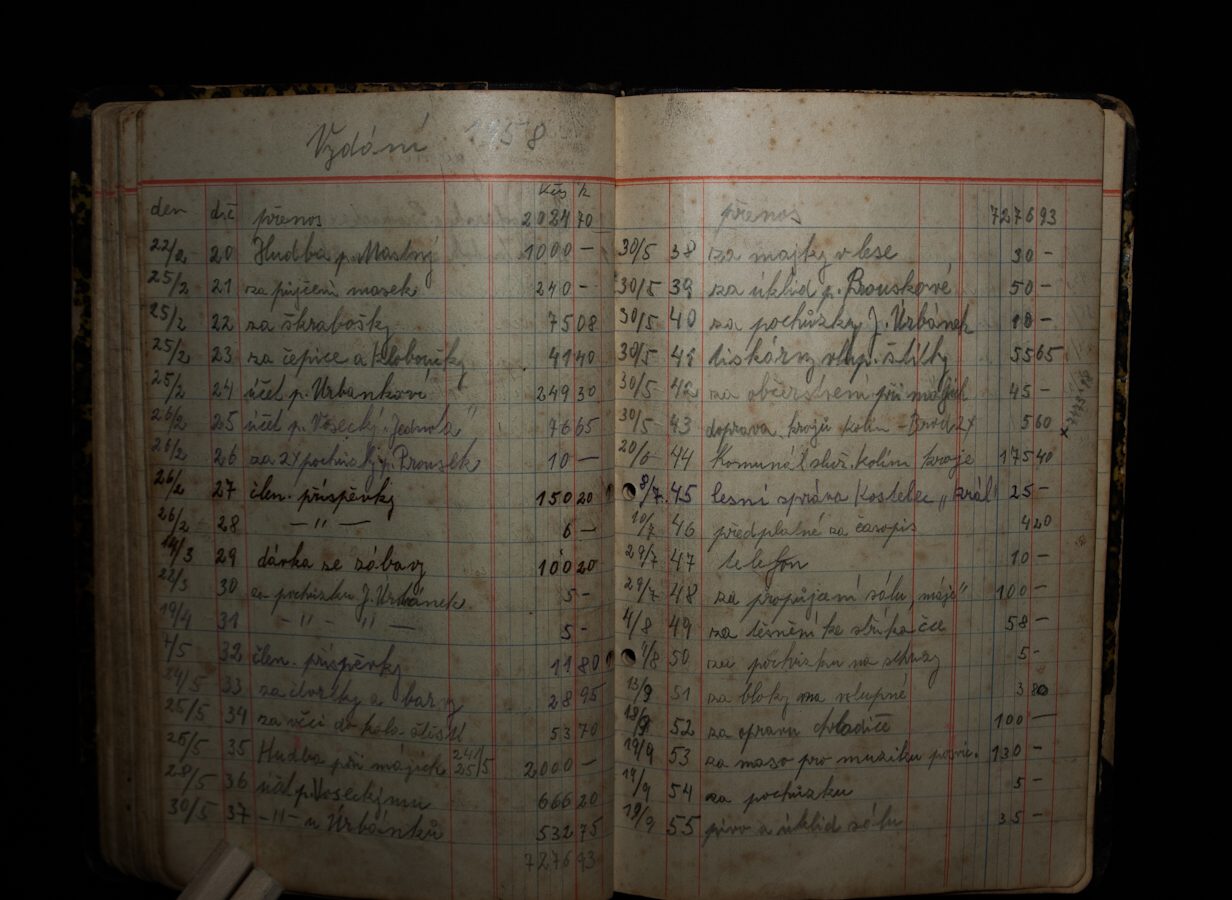 Vydání 1958
Kčs h
den d.č přenos 2024 70
22/2 20 Hudba p. Mastný 1000 —
25/2 21 za půjčení masek 240 —
25/2 22 za škrabošky 75 08
25/2 23 za čepice a kloboučky 41 40
25/2 24 účet p. Urbankovi 249 30
26/2 25 účet p. Vosecký „Jednota" 76 65
26/2 26 za 2x pochůzky p. Prousek 10 —
26/2 27 člen. příspěvky 150 20
26/2 28 — " — 6 —
14/3 29 dávka ze zábavy 100 20
22/3 30 za pochůzku J. Urbánek 5 —
19/4 31 — " — " — 5 —
4/5 32 člen. příspěvky 11 80
24/5 33 za čtvrtky a barvy 28 95
25/5 34 za věci do kola štěstí 53 70
26/5 35 Hudba při májích 24/5 25/5 2.000 —
28/5 36 účet p. Voseckýmu 666 20
30/5 37 — " — u Urbánků 532 75
7276 93
přenos 7276 93
30/5 38 za májky v lese 30 —
30/5 39 za úklid p. Prouskové 50 —
30/5 40 za pochůzky J. Urbánek 10 —
30/5 41 tiskárny vstup. štítky 55 65
30/5 42 za občerstvení při májích 45 —
30/5 43 doprava krojů Kolín - Brod 2x 5 60
20/6 44 Komunál. služ. Kolín kroje 175 40
8/7. 45 lesní správa Kostelec „král" 25 —
10/7 46 předplatné za časopis 4 20
29/7 47 telefon 10 —
29/7 48 za propůjčení sálu „máje" 100 —
4/8 49 za těsnění ke stříkačce 58 —
4/8 50 za pochůzku na schůzy 5 —
13/9 51 za bloky na vstupné 3 80
18/9 52 za opravu chladiče 100 —
19/9 53 za maso pro muziku 130 —
19/9 54 za pochůzku 5 —
19/9 55 pivo a úklid sálu 35 —